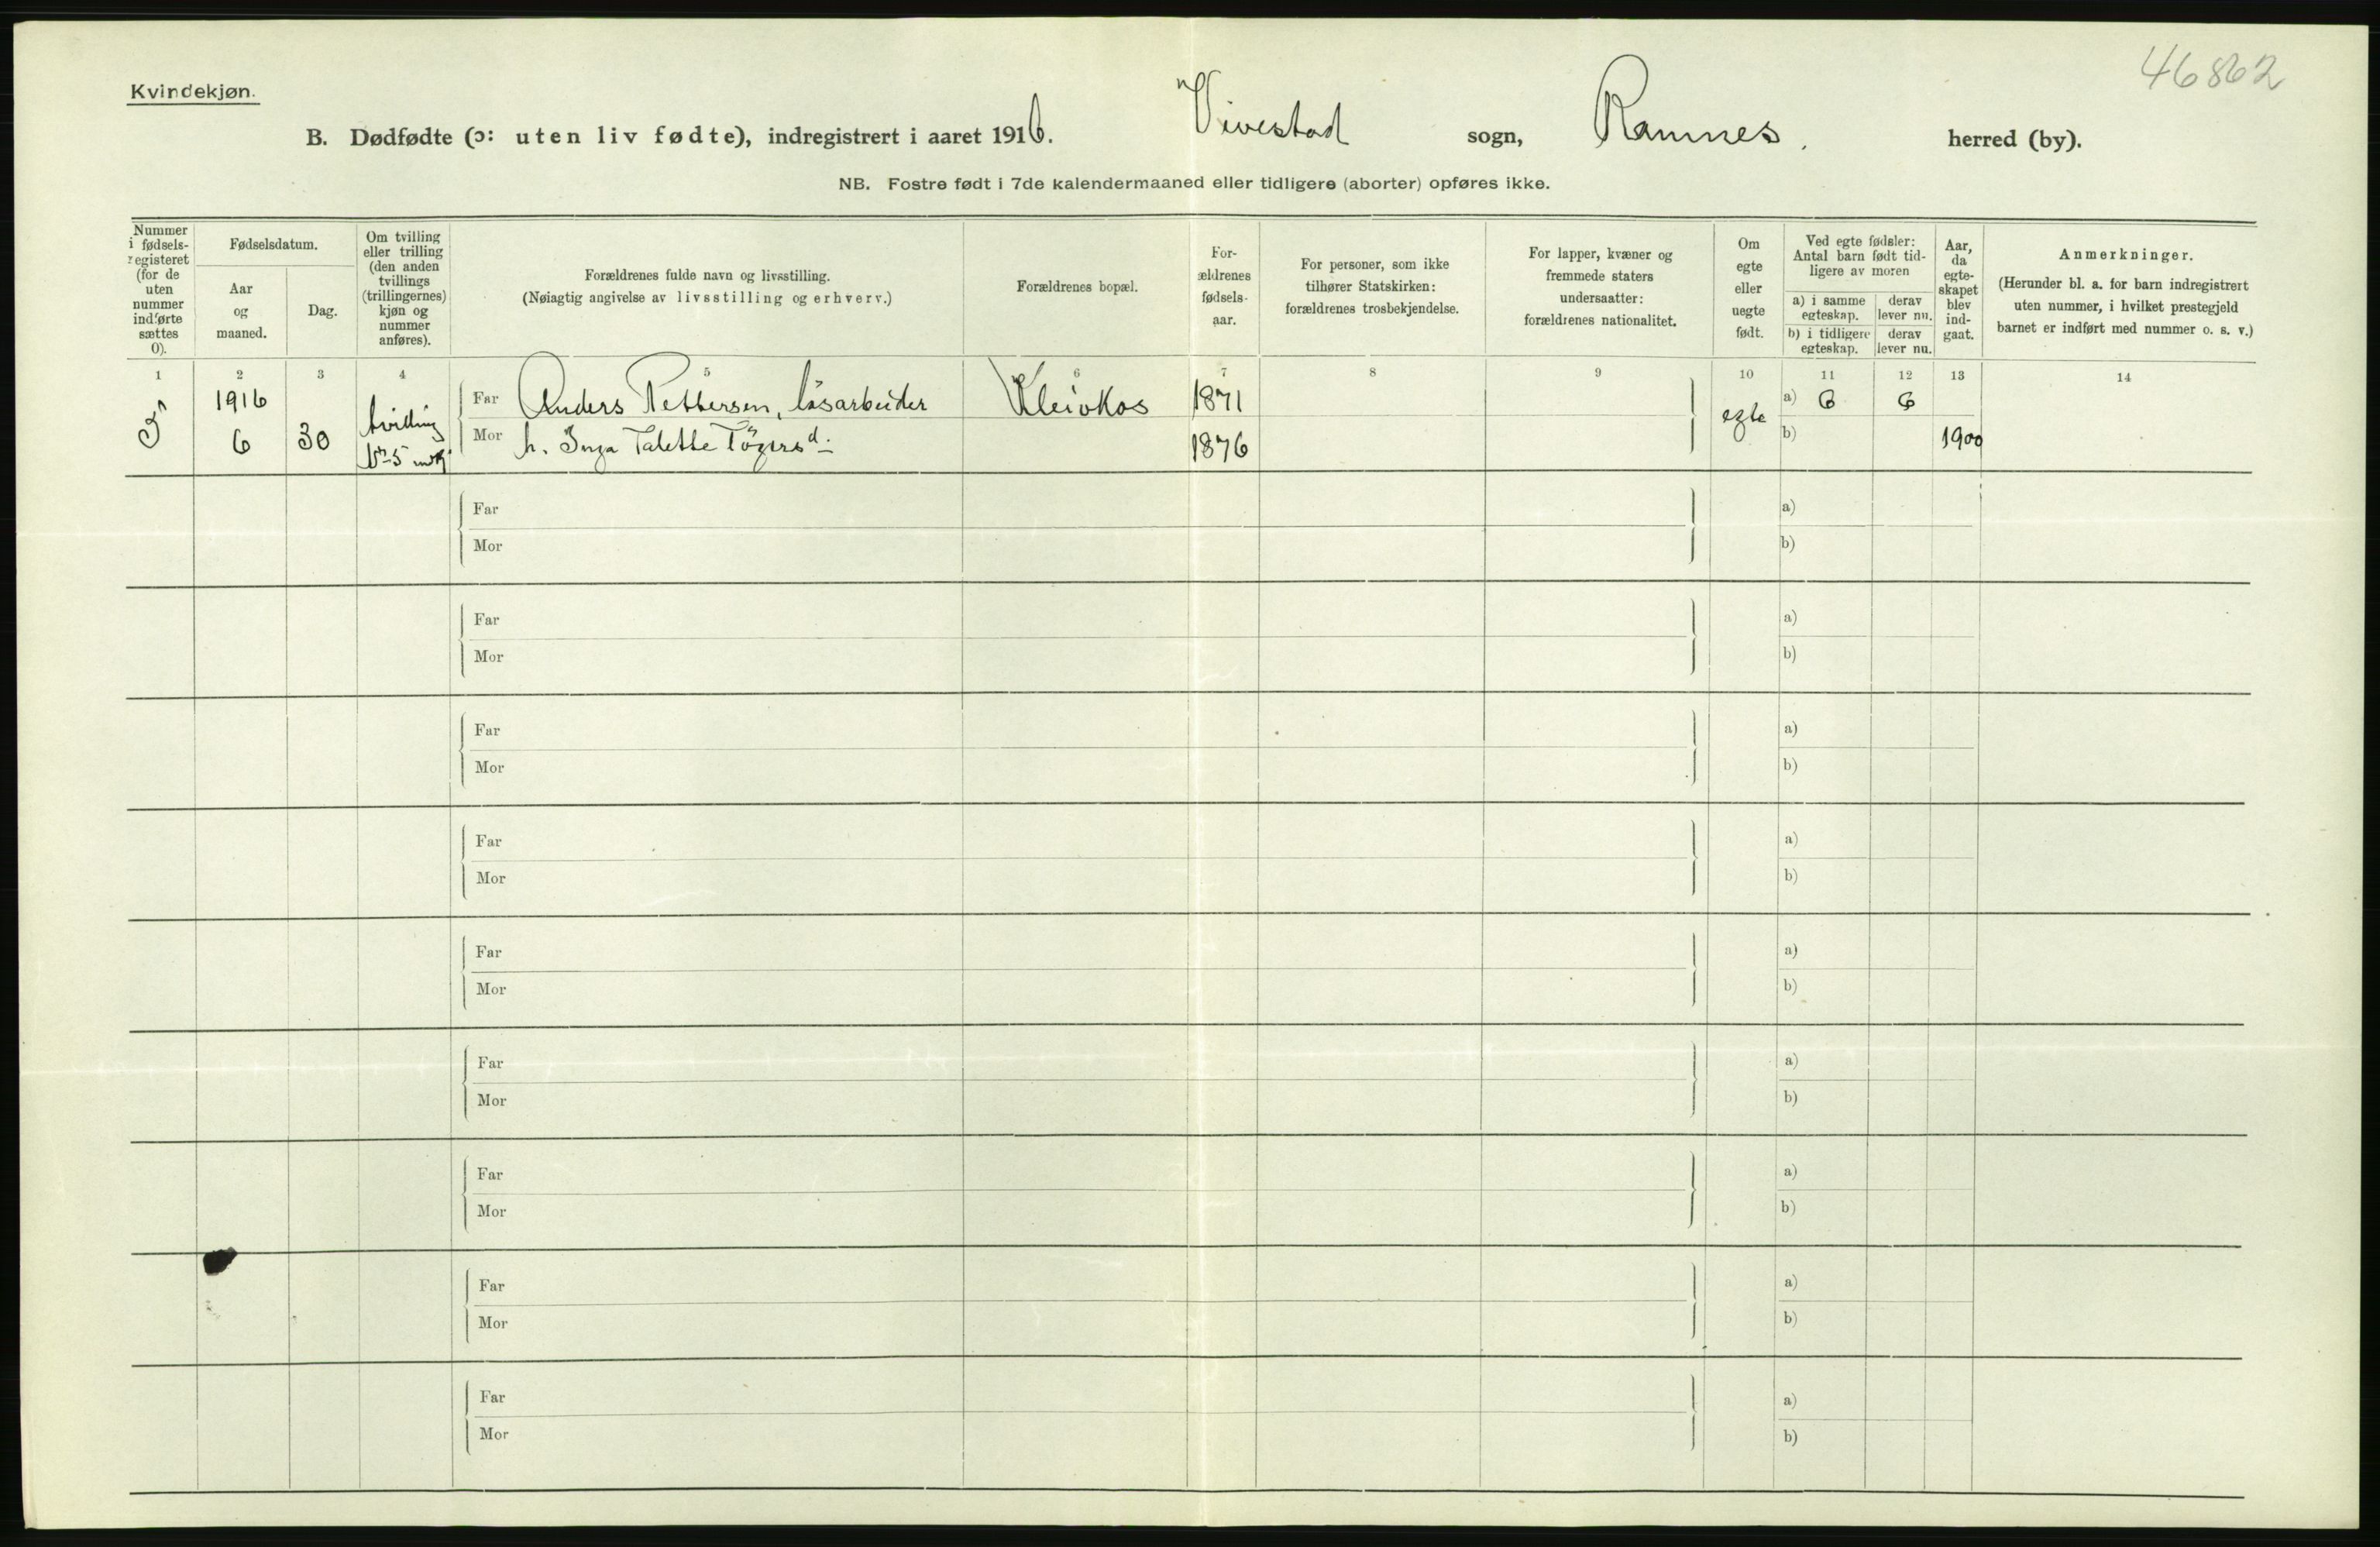 46862
Kvindekjøn.
B. Dødfødte (ɔ: uten liv fødte), indregistrert i aaret 1916. Vivestad sogn, Ramnes. herred (by).
NB. Fostre født i 7de kalendermaaned eller tidligere (aborter) opføres ikke.
Nummer
i fødsels-
registeret
(for de
uten
nummer
indførte
sættes
0).
Fødselsdatum.
Aar
og
maaned.
Dag.
Om tvilling
eller trilling
(den anden
tvillings
(trillingernes)
kjøn og
nummer
anføres).
Forældrenes fulde navn og livsstilling.
(Nøiagtig angivelse av livsstilling og erhverv.)
Forældrenes bopæl.
For-
ældrenes
fødsels-
aar.
For personer, som ikke
tilhører Statskirken:
forældrenes trosbekjendelse.
For lapper, kvæner og
fremmede staters
undersaatter:
forældrenes nationalitet.
Om
egte
eller
uegte
født.
Ved egte fødsler:
Antal barn født tid-
ligere av moren
a) i samme
egteskap.
derav
lever nu.
b) i tidligere
egteskap.
derav
lever nu.
Aar,
da
egte-
skapet
blev
ind-
gaat.
Anmerkninger.
(Herunder bl. a. for barn indregistrert
uten nummer, i hvilket prestegjeld
barnet er indført med nummer o. s. v.)
1 2 3 4 5 6 7 8 9 10 11 12 13 14
1916 tvilling Far Anders Pettersen, løsarbeider Kleivkas 1871 egte a) 6 6
6 30 Mor h. Inga Talette Tögersd. 1876 b) 1900
Far a)
Mor b)
Far a)
Mor b)
Far a)
Mor b)
Far a)
Mor b)
Far a)
Mor b)
Far a)
Mor b)
Far a)
Mor b)
Far a)
Mor b)
Far a)
Mor b)